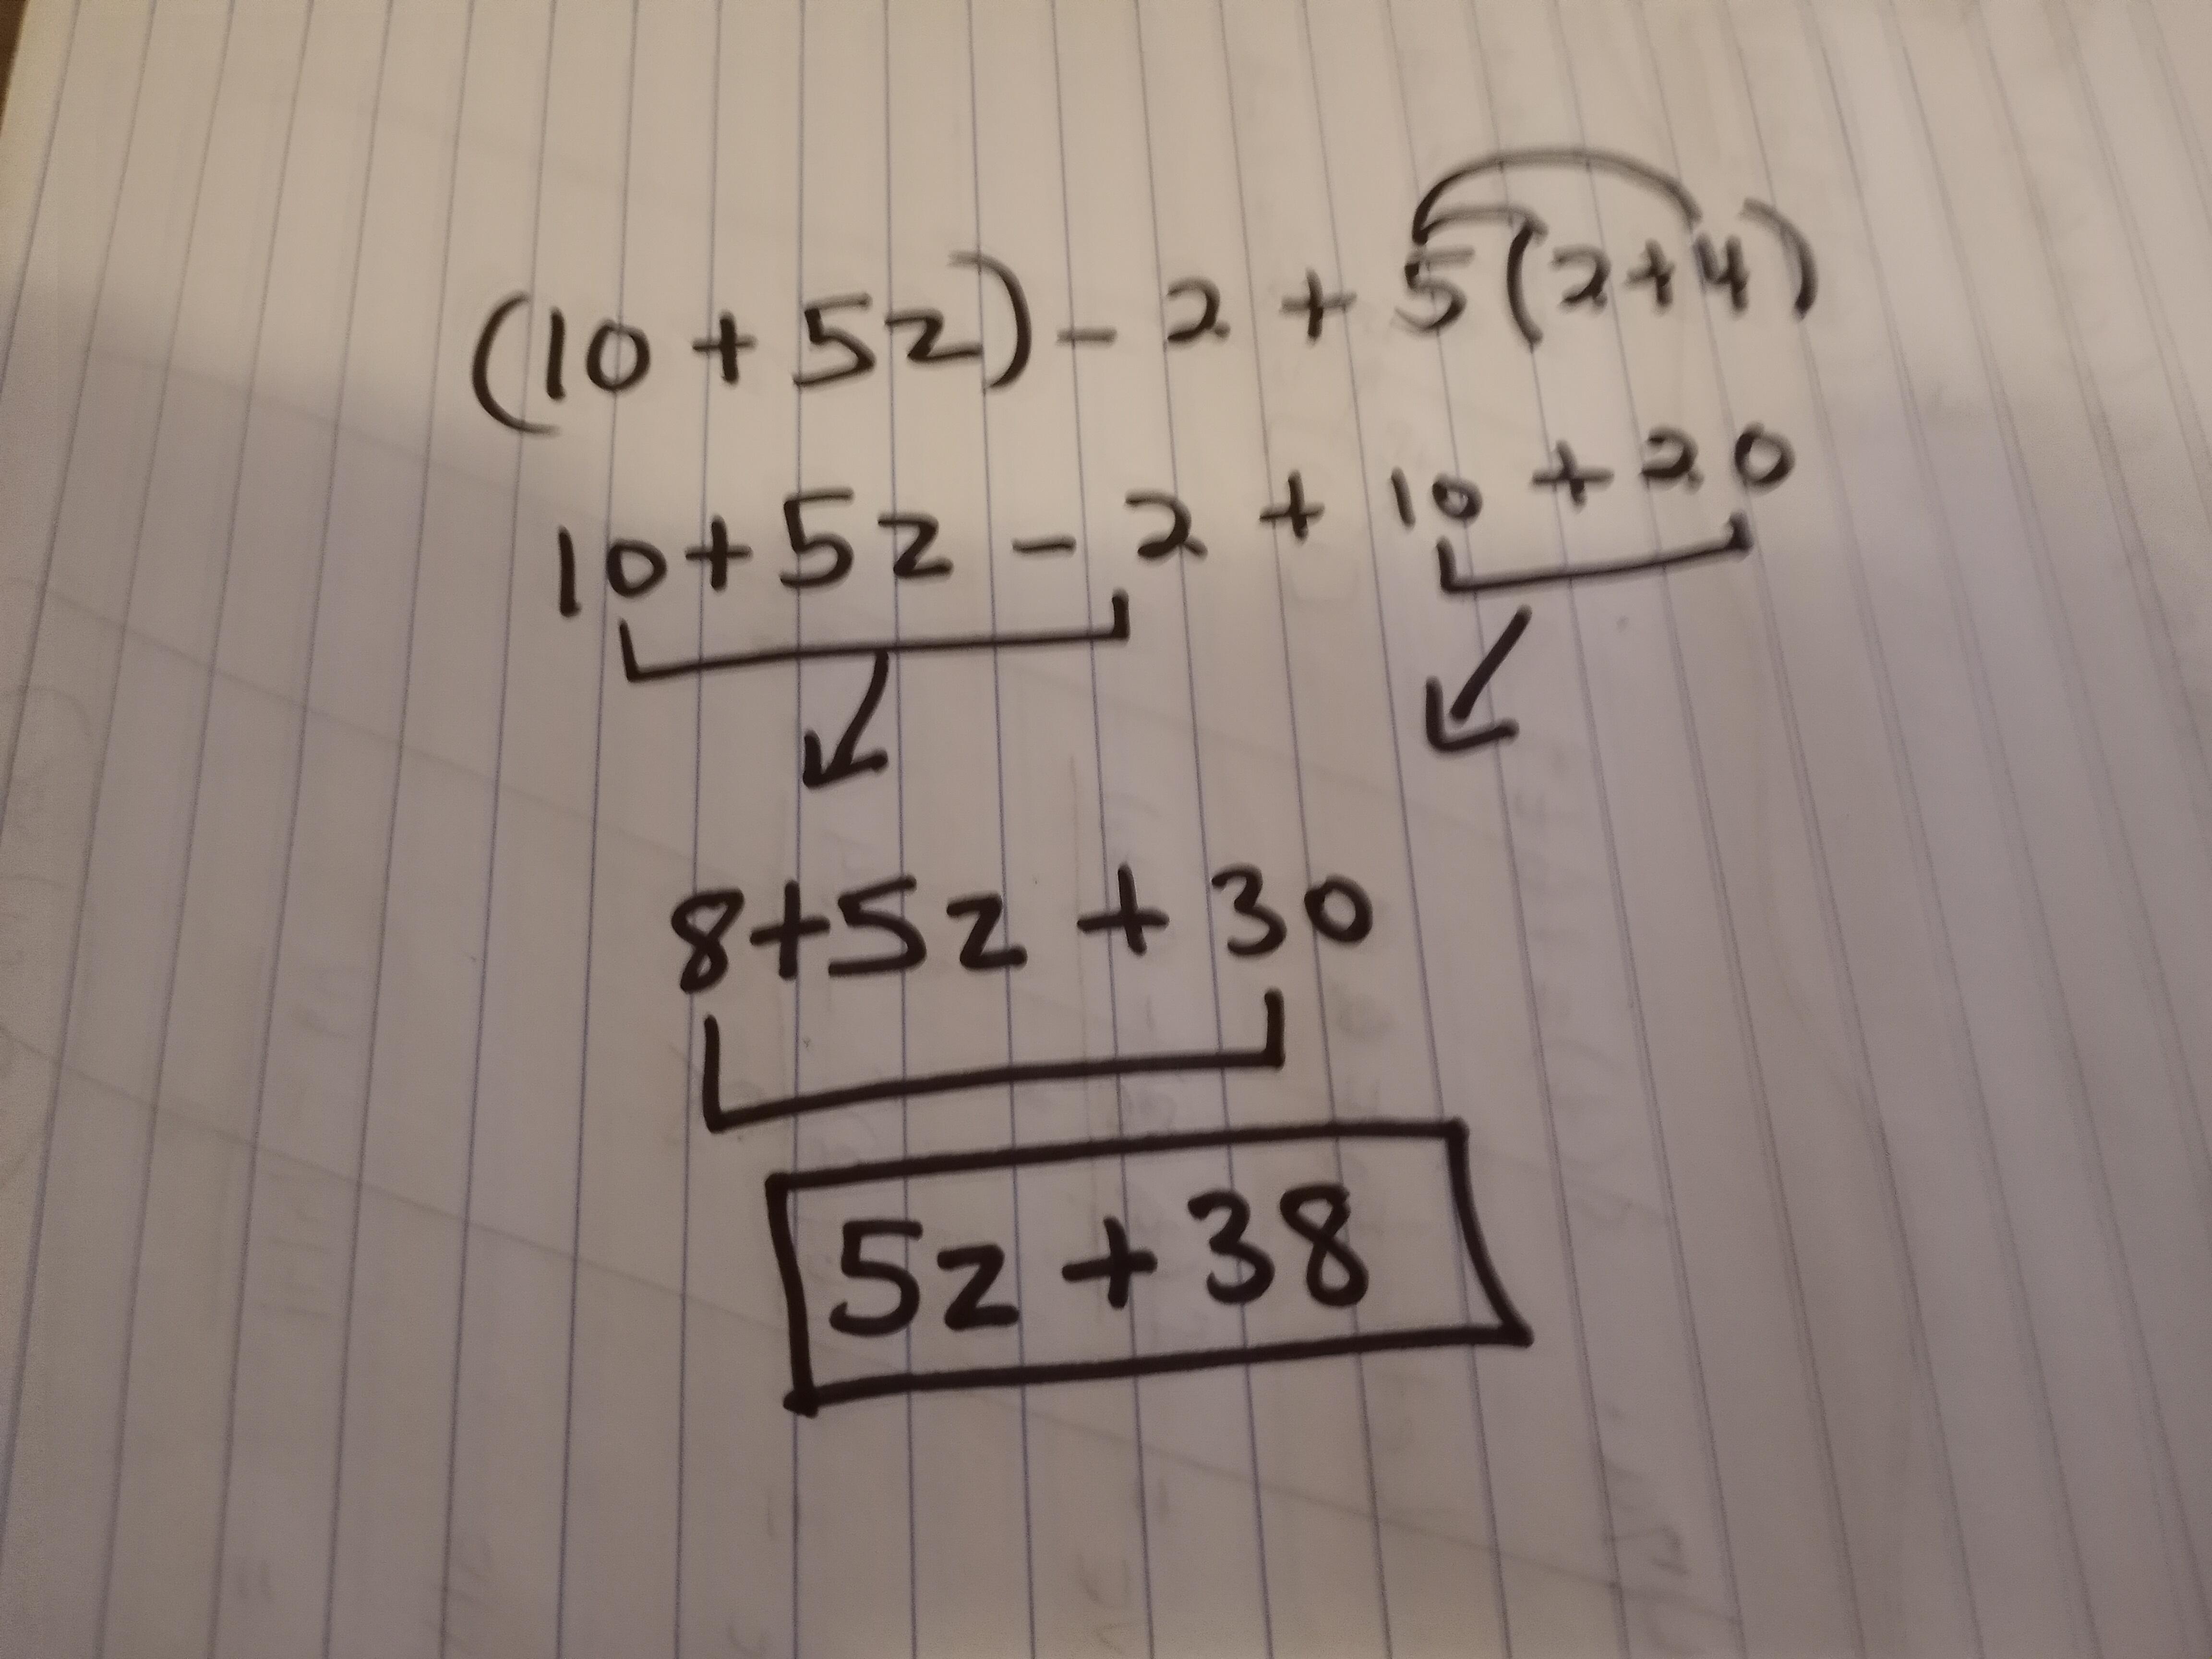 (10 + 5z) - 2 + 5(2+4)
10 + 5z - 2 + 10 + 20
8 + 5z + 30
5z + 38